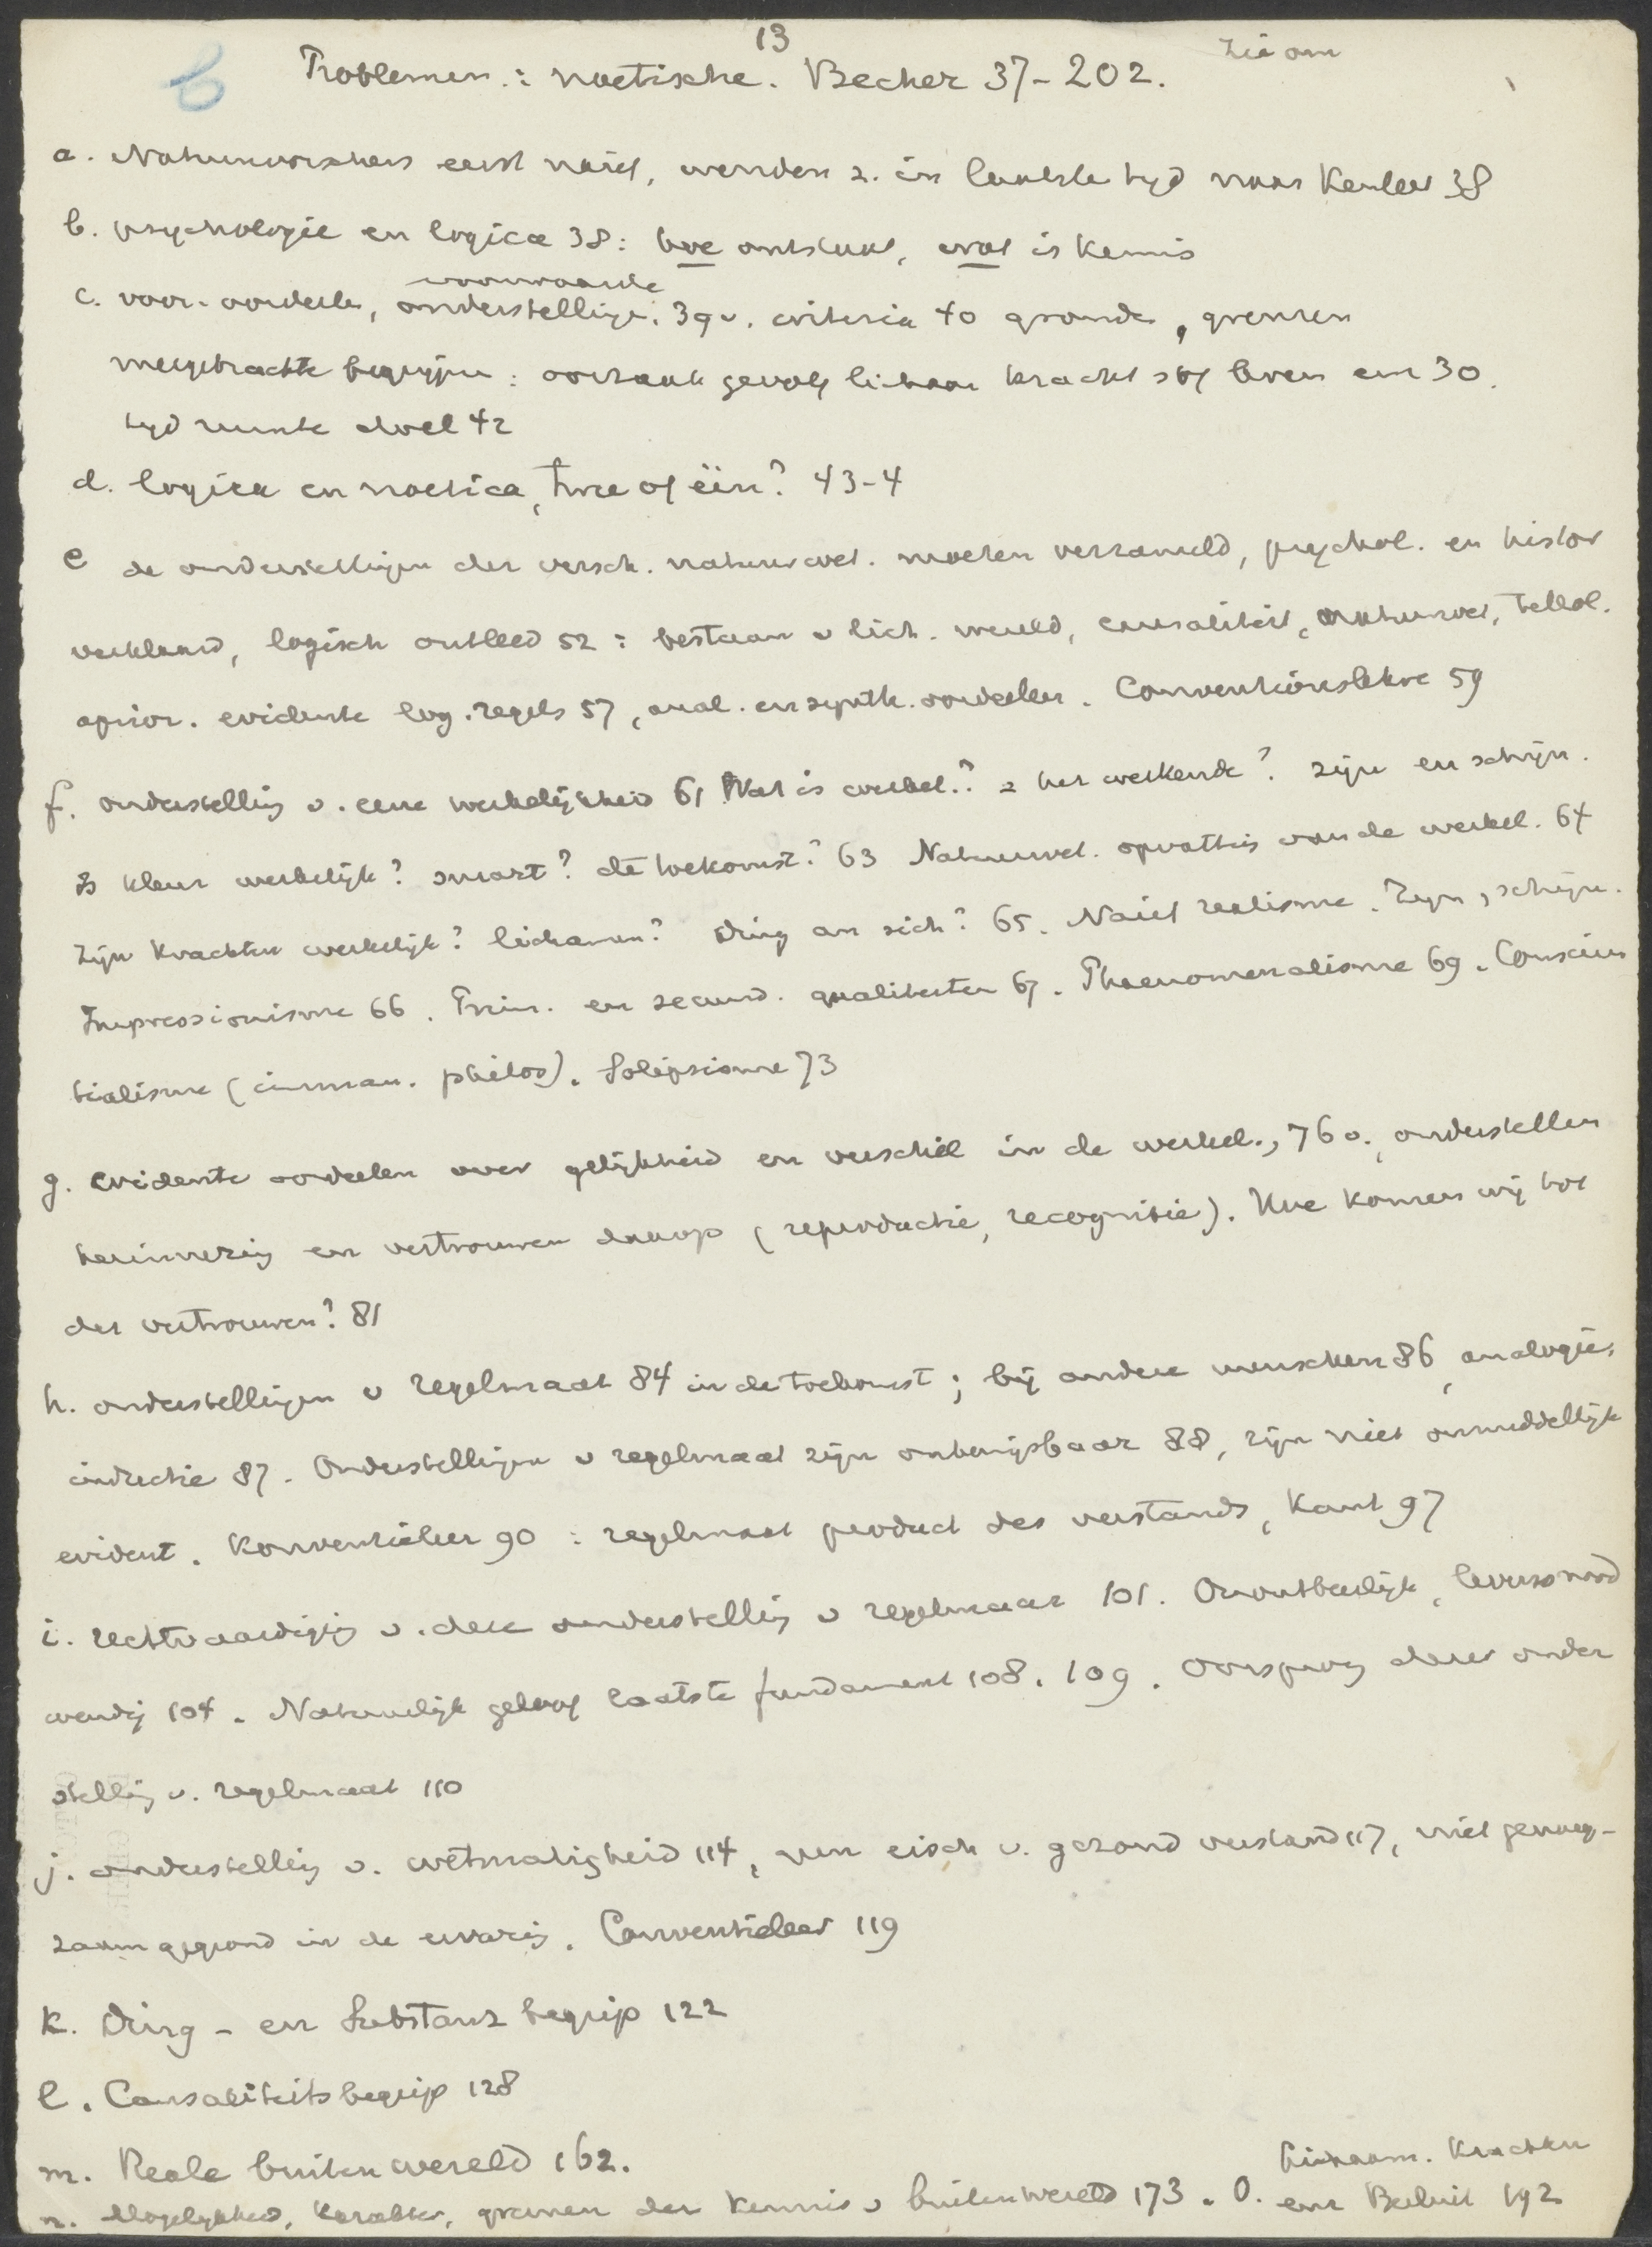 13
zie om
b
Problemen : noetische. Becher 37-202.
a. Natuurvorschers eerst naief, wenden z. in laatste tyd naar Kenleer 38
b. psychologie en logica 38: hoe ontstaat, wat is Kennis
voorwaarde
c. voor-oordeelen, onderstellingen. 39 v. criteria 40 gronden, grenzen
meegebrachte begrippen: oorzaak gevolg lichaam kracht stof leven enz 30.
tyd ruimte doel 42
d. logica en noetica, twee of één? 43-4
e de onderstellingen der versch. natuurwet. moeten verzameld, psychol. en histor
verklaard, logisch ontleed 52: bestaan v lich. wereld, causaliteit, natuurwet,
aprior. evidente log. regels 57, anal. en synth. oordeelen. Conventionslehre 59
f. onderstelling v. eene werkelijkheid 61 Wat is werkel.? = het werkende? zijn en schijn.
Is kleur werkelijk? smart? de toekomst? 63 Natuurwet. opvatting van de werkel. 64
Zijn Krachten werkelijk? lichamen? Ding an sich? 65. Naief realisme. Zijn, schijn.
Impressionisme 66. Prim. en secund. qualiteiten 67. Phaenomenalisme 69. Conscien
tialisme (imman. philos). Solipsisme 73
g. evidente oordeelen over gelijkheid en verschil in de werkel., 76 v., onderstellen
herinnering en vertrouwen daarop (reproductie, recognitie). Hoe komen wij tot
dat vertrouwen? 81
h. onderstellingen v regelmaat 84 in de toekomst; bij andere menschen 86, analogie,
inductie 87. Onderstellingen v regelmaat zijn onbewijsbaar 88, zijn niet onmiddellijk
evident. Konventieleer 90: regelmaat product des verstands, Kant 97
i. rechtvaardiging v. deze onderstelling v regelmaat 101. Onontbeerlijk, levensnood
wendig 104. Natuurlijk geloof laatste fundament 108. 109. Oorsprong dezer onder
stelling v. regelmaat 110
j. onderstelling v. wetmatigheid 114, een eisch v. gezond verstand 117, niet genoeg-
zaam gegrond in de ervaring. Conventieleer 119
k. Ding- en Substanzbegrip 122
l. Causaliteitsbegrip 128
m. Reale buitenwereld 162.
n. Mogelykheid, karakter, grenzen der Kennis v buitenwereld 173. O. Lichaam. Krachten
enz Besluit 192